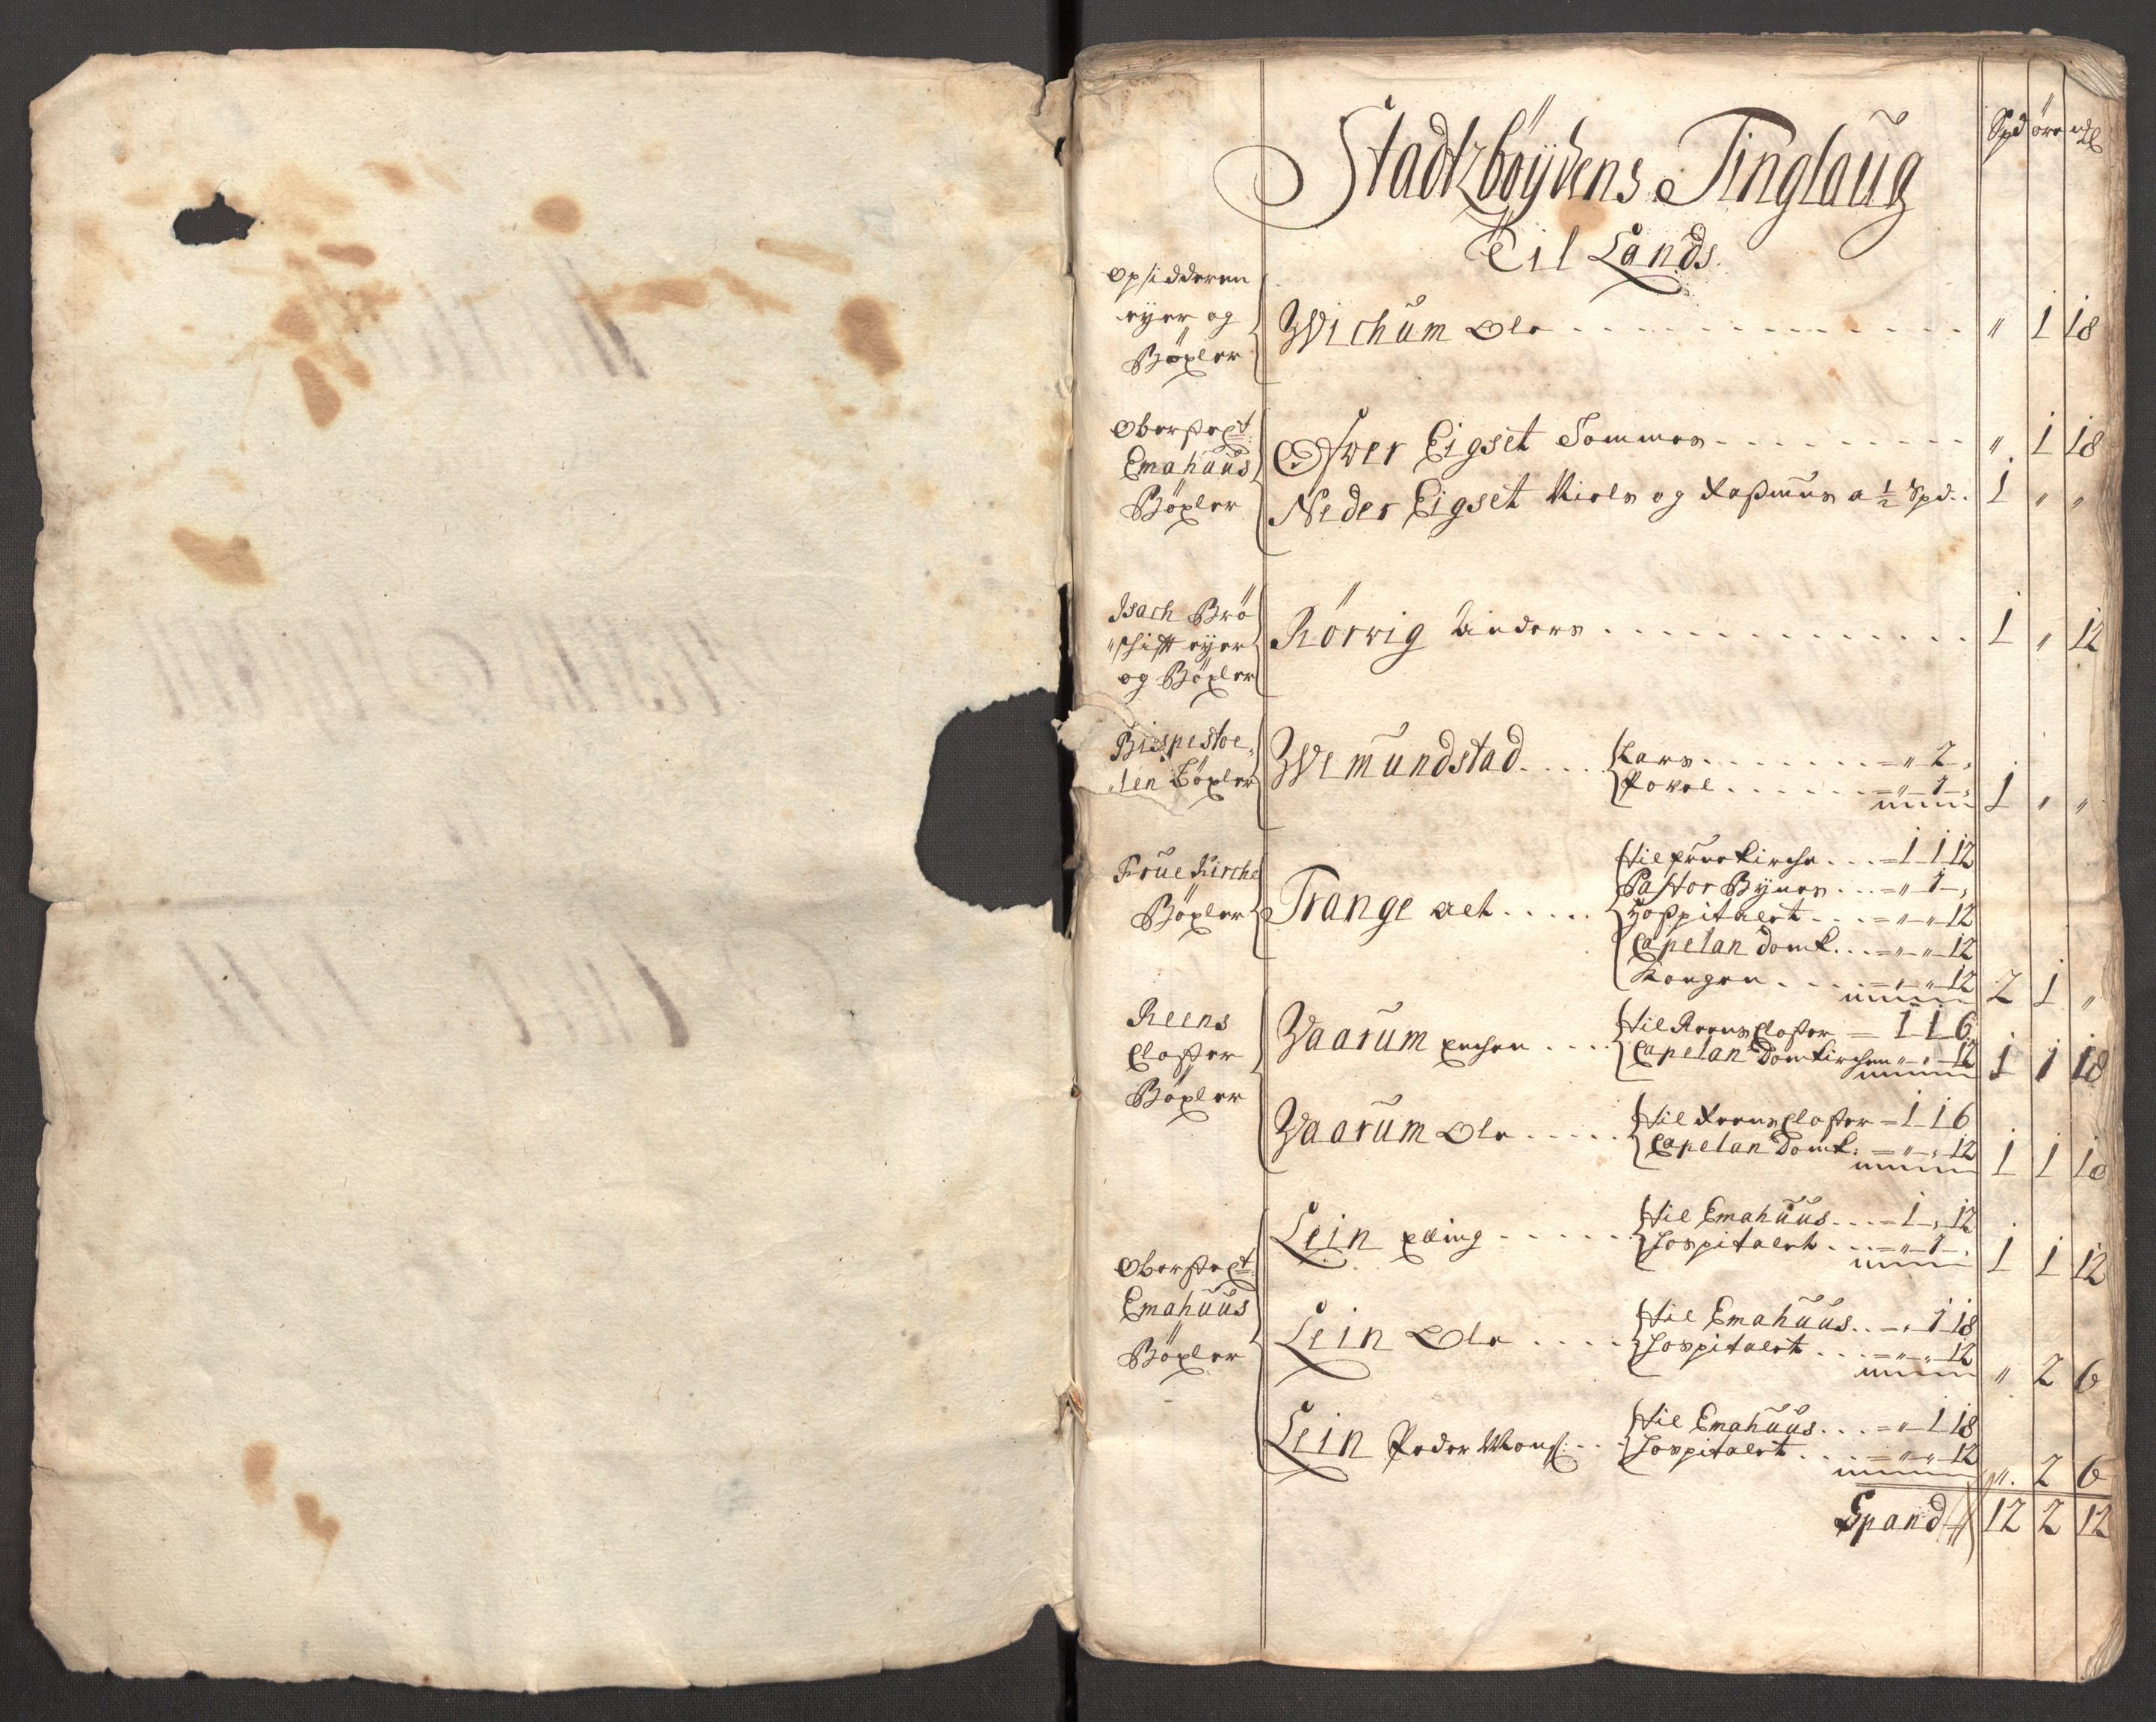 Spd öre mkl
Stadtzböÿdens Tinglaug
Til Lands
Opsidderen
eyer og
Böxler
Wichum Ole . . . . . " 1 18
Oberstelt:
Emahuus
Böxler
Øfwer Eigset Sommer . . . . . " 1 18
Neder Eigset Niels og Rasmus a ½ Spd. . 1 " "
Isach Brö
"schift eyer
og Böxler
Rörvig Anders . . . . . 1 " 12
Bispestoe,
,len Böxler
Wemundstad . . . .
Lars . . . . . = " 2 "
Povel . . . . . = " 1 "
1 " "
Frue Kirche
Böxler
Trange . . . . .
til frue Kirche . . . = 1 1 12
Pastor Bÿnes . . . = " 1 "
Hospitalet . . . = " " 12
Capelan Domk. . . = " " 12
Kongen . . . . = " " 12
2 1 "
Reens
Closter
Böxler
Vaarum . . . .
til Reens Closter = 1 1 6
Capelan Domkirchen " " 12
1 1 18
Vaarum Ole . . . . .
til Reens Closter = 1 1 6
Capelan Domk: = " " 12
1 1 18
Oberstelt:
Emahuus
Böxler
Lein Elling . . . . .
til Emahuus . . . = 1 " 12
Hospitalet . . . = " 1 "
1 1 12
Lein Ole . . . .
til Emahuus . . = " 1 18
Hospitalet . . . = " " 12
" 2 6
Lein Peder Mons: . .
til Emahuus . . . = " 1 18
Hospitalet . . . . = " " 12
" 2 6
Spand 12 2 12